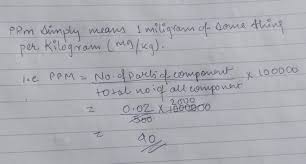 PPM simply means 1 miligram of some thing
per kilogram (mg/kg).
i.e PPM = No. of parts of component × 100000
total no. of all component
= 0.02 × 1000000 2000
500
= 40